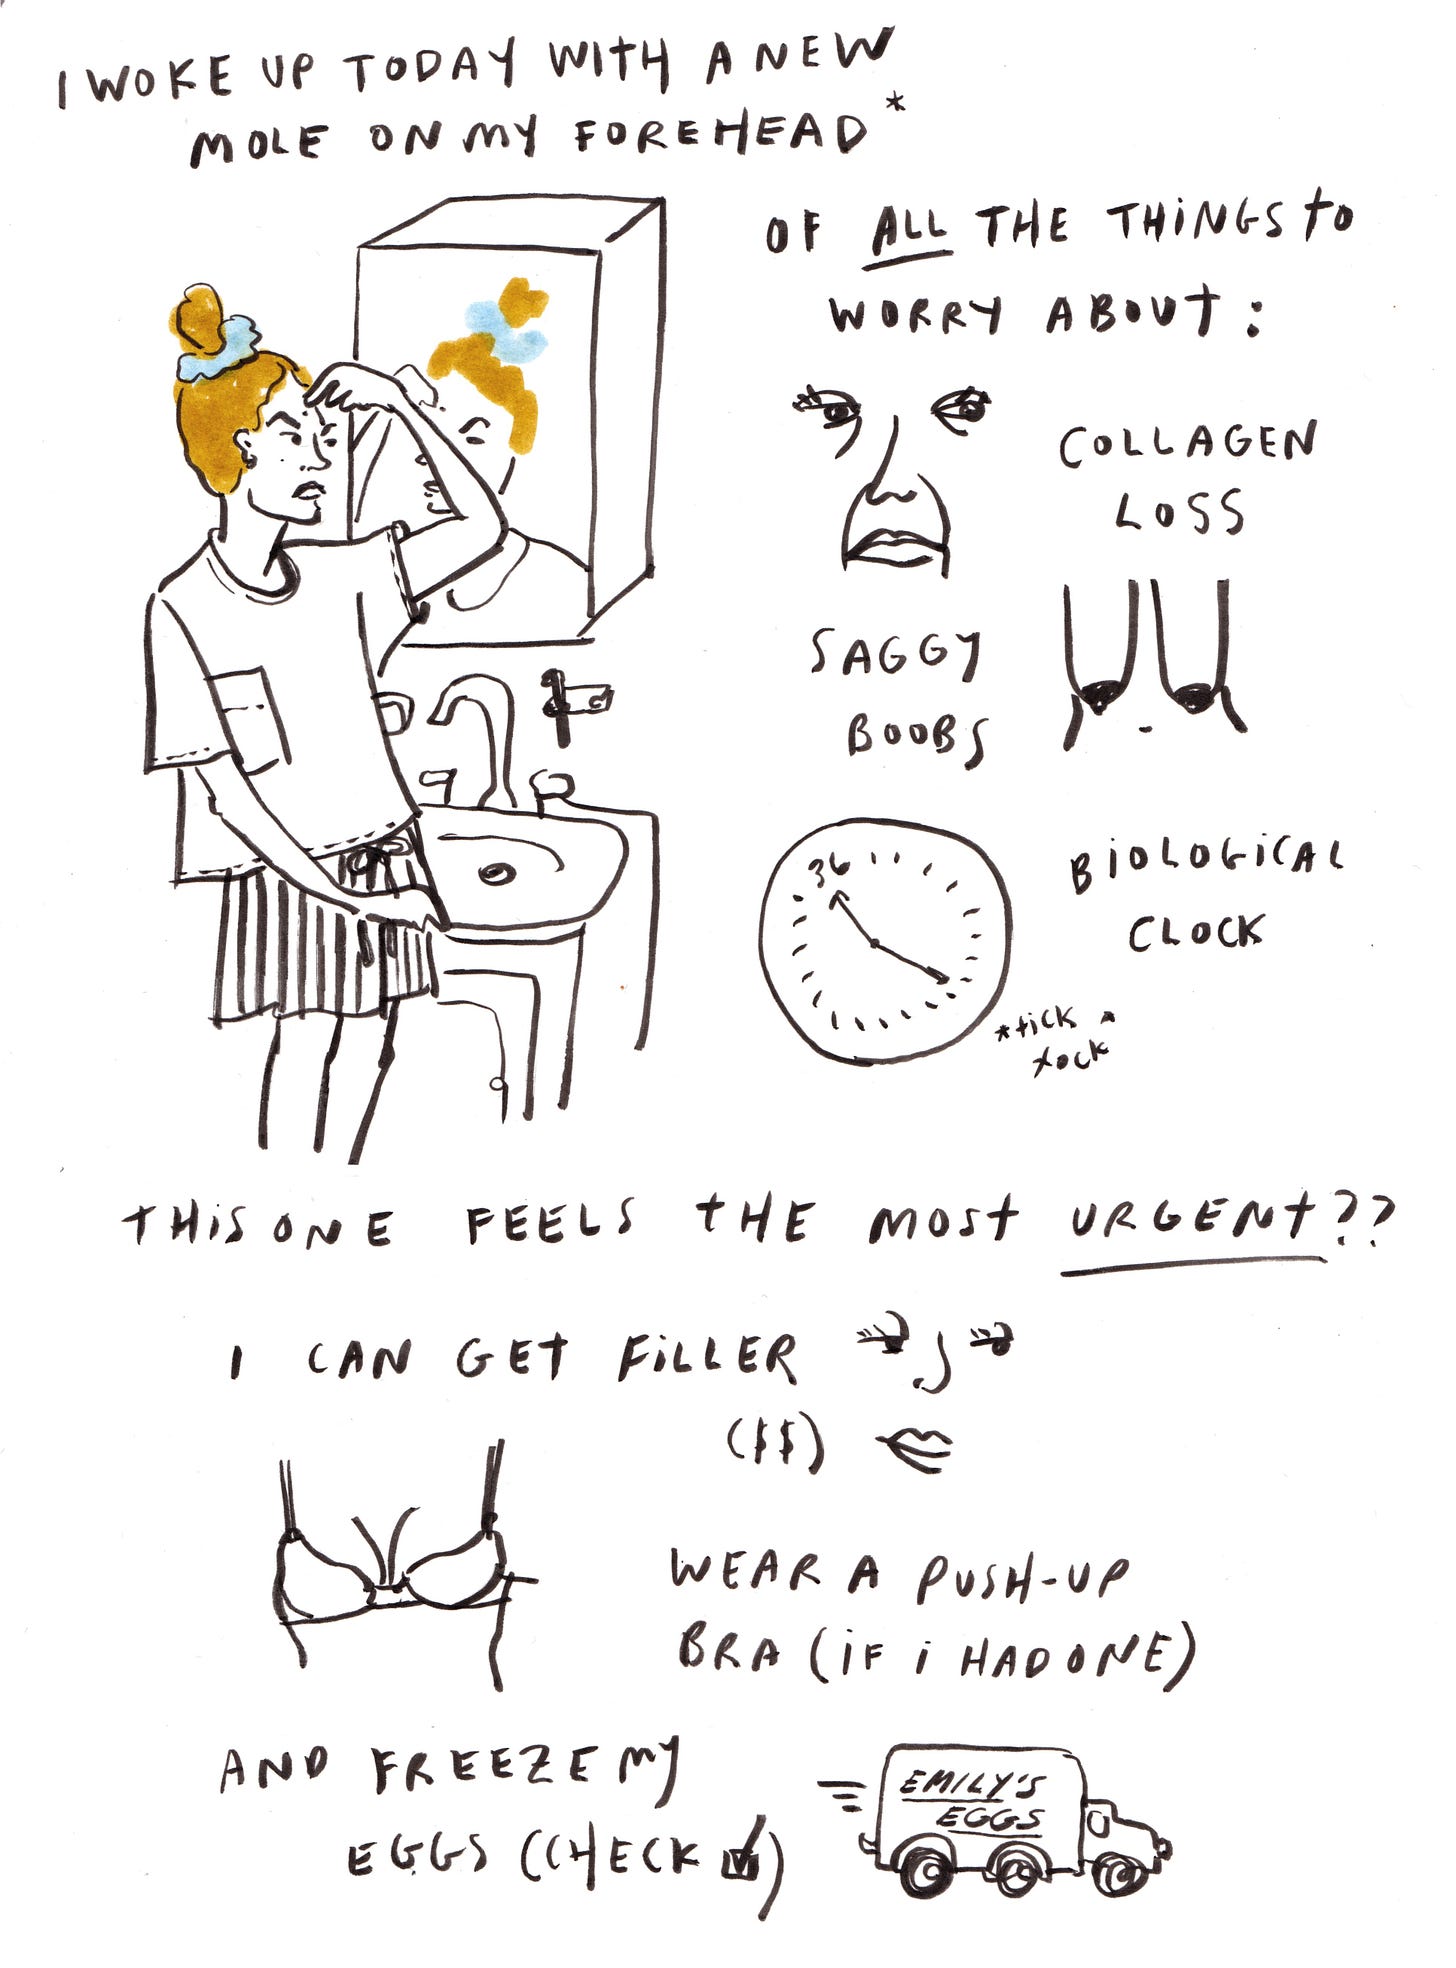 I WOKE UP TODAY WITH A NEW
MOLE ON MY FOREHEAD*
OF ALL THE THINGS TO
WORRY ABOUT:
COLLAGEN
LOSS
SAGGY
BOOBS
36
BIOLOGICAL
CLOCK
*tick *
tock
THIS ONE FEELS THE MOST URGENT??
I CAN GET FILLER
($$)
WEAR A PUSH-UP
BRA (IF I HAD ONE)
AND FREEZE MY
EGGS (CHECK ☑)
EMILY'S
EGGS